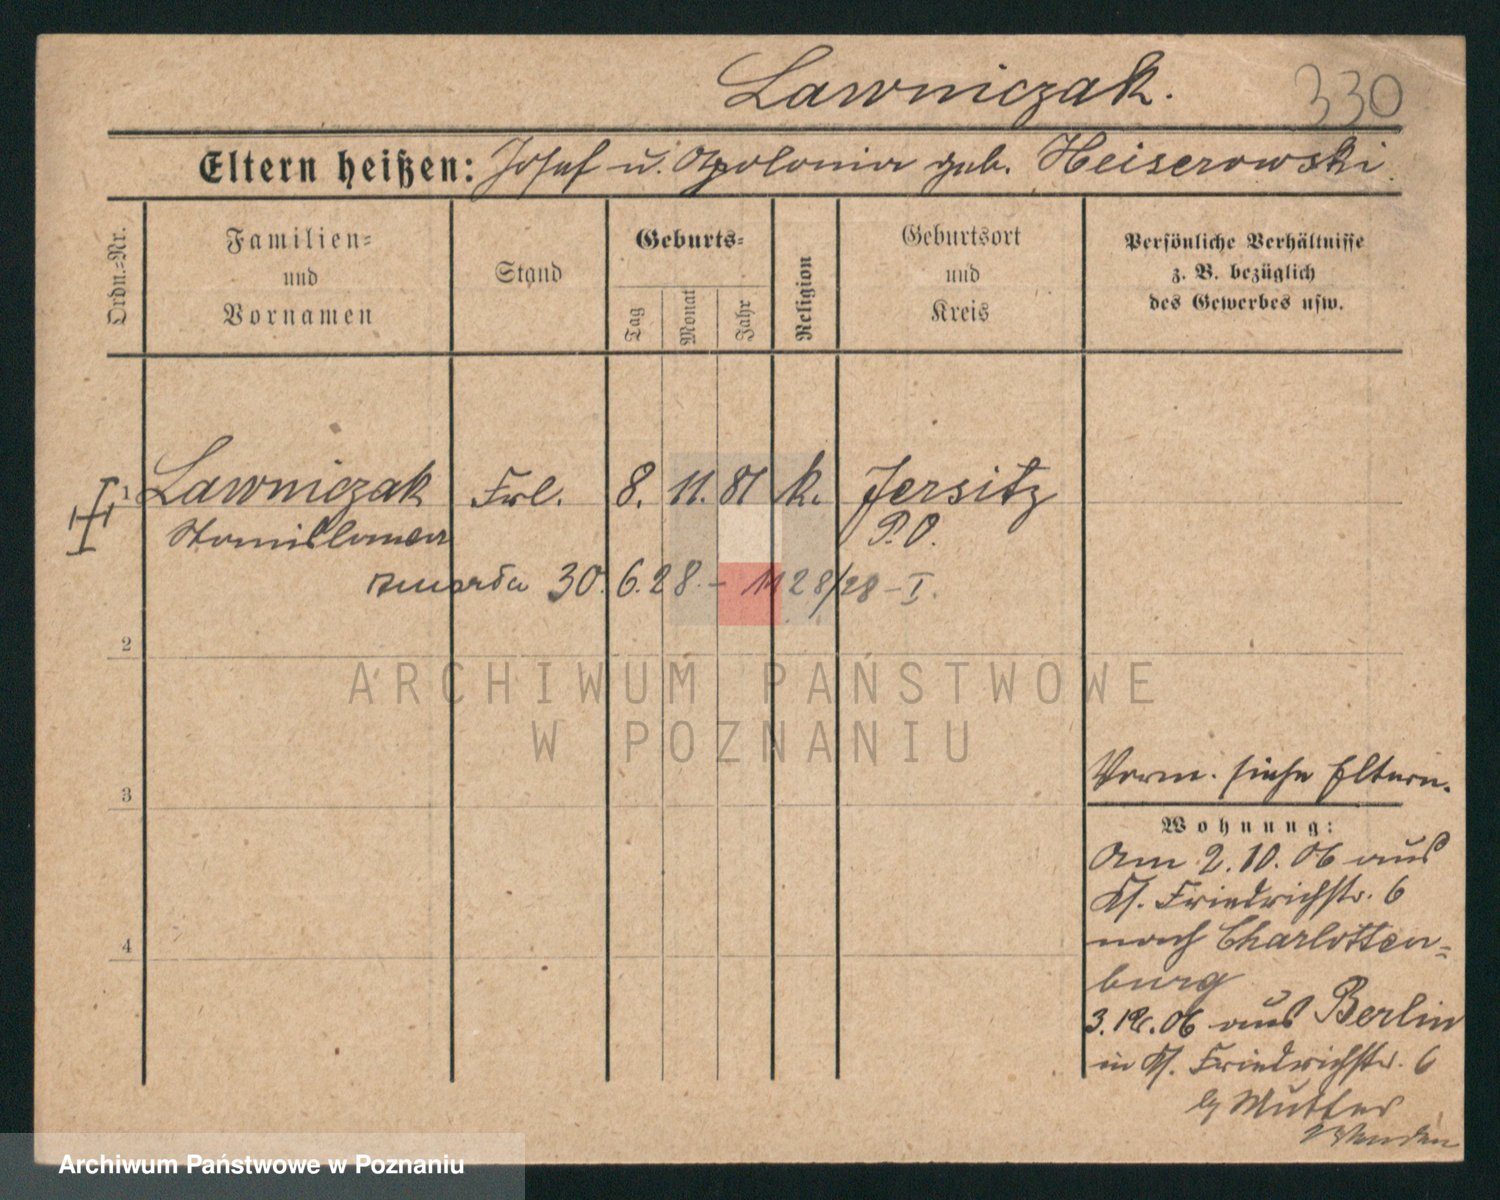 Lawniczak.
330
Eltern heißen: Josef u. Apolonia geb. Heiserowski.
Ordn.-Nr.
Familien- und Vornamen
Stand
Geburts-
Tag
Monat
Jahr
Religion
Geburtsort und Kreis
Persönliche Verhältnisse z. B. bezüglich des Gewerbes usw.
1 Lawniczak Frl. 8. 11. 81 k. Jersitz
Stanislawa P.O.
zmarła 30.6.28. – 1128/28 – I.
2
ARCHIWUM PAŃSTWOWE
W POZNANIU
3
4
Verm. siehe Eltern.
Wohnung:
Am 2.10.06 aus
Kl. Friedrichstr. 6
nach Charlotten-
burg
3.12.06 aus Berlin
in Kl. Friedrichstr. 6
Mutter
Wenden
Archiwum Państwowe w Poznaniu